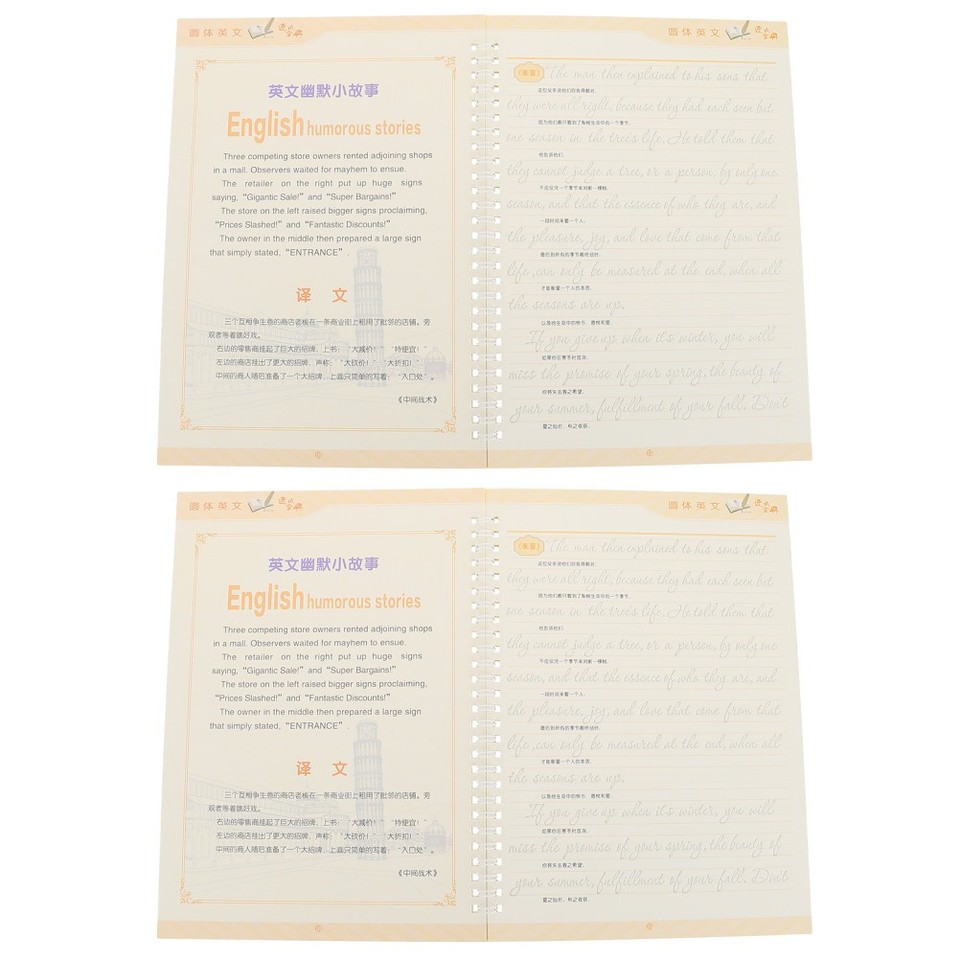 圆体英文
英文幽默小故事
English humorous stories
Three competing store owners rented adjoining shops
in a mall. Observers waited for mayhem to ensue.
The retailer on the right put up huge signs
saying, “Gigantic Sale!” and “Super Bargains!”
The store on the left raised bigger signs proclaiming,
“Prices Slashed!” and “Fantastic Discounts!”
The owner in the middle then prepared a large sign
that simply stated, “ENTRANCE”.
译 文
三个互相争生意的商店老板在一条商业街上租用了毗邻的店铺。旁
观者等着瞧好戏。
右边的零售商挂起了巨大的招牌，上书：“大减价！”“特便宜！”
左边的商店挂出了更大的招牌，声称：“大砍价！”“大折扣！”
中间的商人随后准备了一个大招牌，上面只简单的写着：“入口处”。
《中间战术》
圆体英文
The man then explained to his sons that
they were all right, because they had each seen but
因为他们都只看到了每树生命中的一个季节，
one season in the tree's life. He told them that
他告诉他们，
they cannot judge a tree, or a person, by only one
season, and that the essence of who they are, and
一段时间来看一个人，
the pleasure, joy, and love that come from that
life, can only be measured at the end, when all
才能衡量一个人的本质，
the seasons are up.
If you give up when it's winter, you will
miss the promise of your spring, the beauty of
your summer, fulfillment of your fall. Don't
夏之灿烂，秋之收获。
圆体英文
英文幽默小故事
English humorous stories
Three competing store owners rented adjoining shops
in a mall. Observers waited for mayhem to ensue.
The retailer on the right put up huge signs
saying, “Gigantic Sale!” and “Super Bargains!”
The store on the left raised bigger signs proclaiming,
“Prices Slashed!” and “Fantastic Discounts!”
The owner in the middle then prepared a large sign
that simply stated, “ENTRANCE”.
译 文
三个互相争生意的商店老板在一条商业街上租用了毗邻的店铺。旁
观者等着瞧好戏。
右边的零售商挂起了巨大的招牌，上书：“大减价！”“特便宜！”
左边的商店挂出了更大的招牌，声称：“大砍价！”“大折扣！”
中间的商人随后准备了一个大招牌，上面只简单的写着：“入口处”。
《中间战术》
圆体英文
The man then explained to his sons that
they were all right, because they had each seen but
因为他们都只看到了每树生命中的一个季节，
one season in the tree's life. He told them that
他告诉他们，
they cannot judge a tree, or a person, by only one
season, and that the essence of who they are, and
一段时间来看一个人，
the pleasure, joy, and love that come from that
life, can only be measured at the end, when all
才能衡量一个人的本质，
the seasons are up.
If you give up when it's winter, you will
miss the promise of your spring, the beauty of
your summer, fulfillment of your fall. Don't
夏之灿烂，秋之收获。